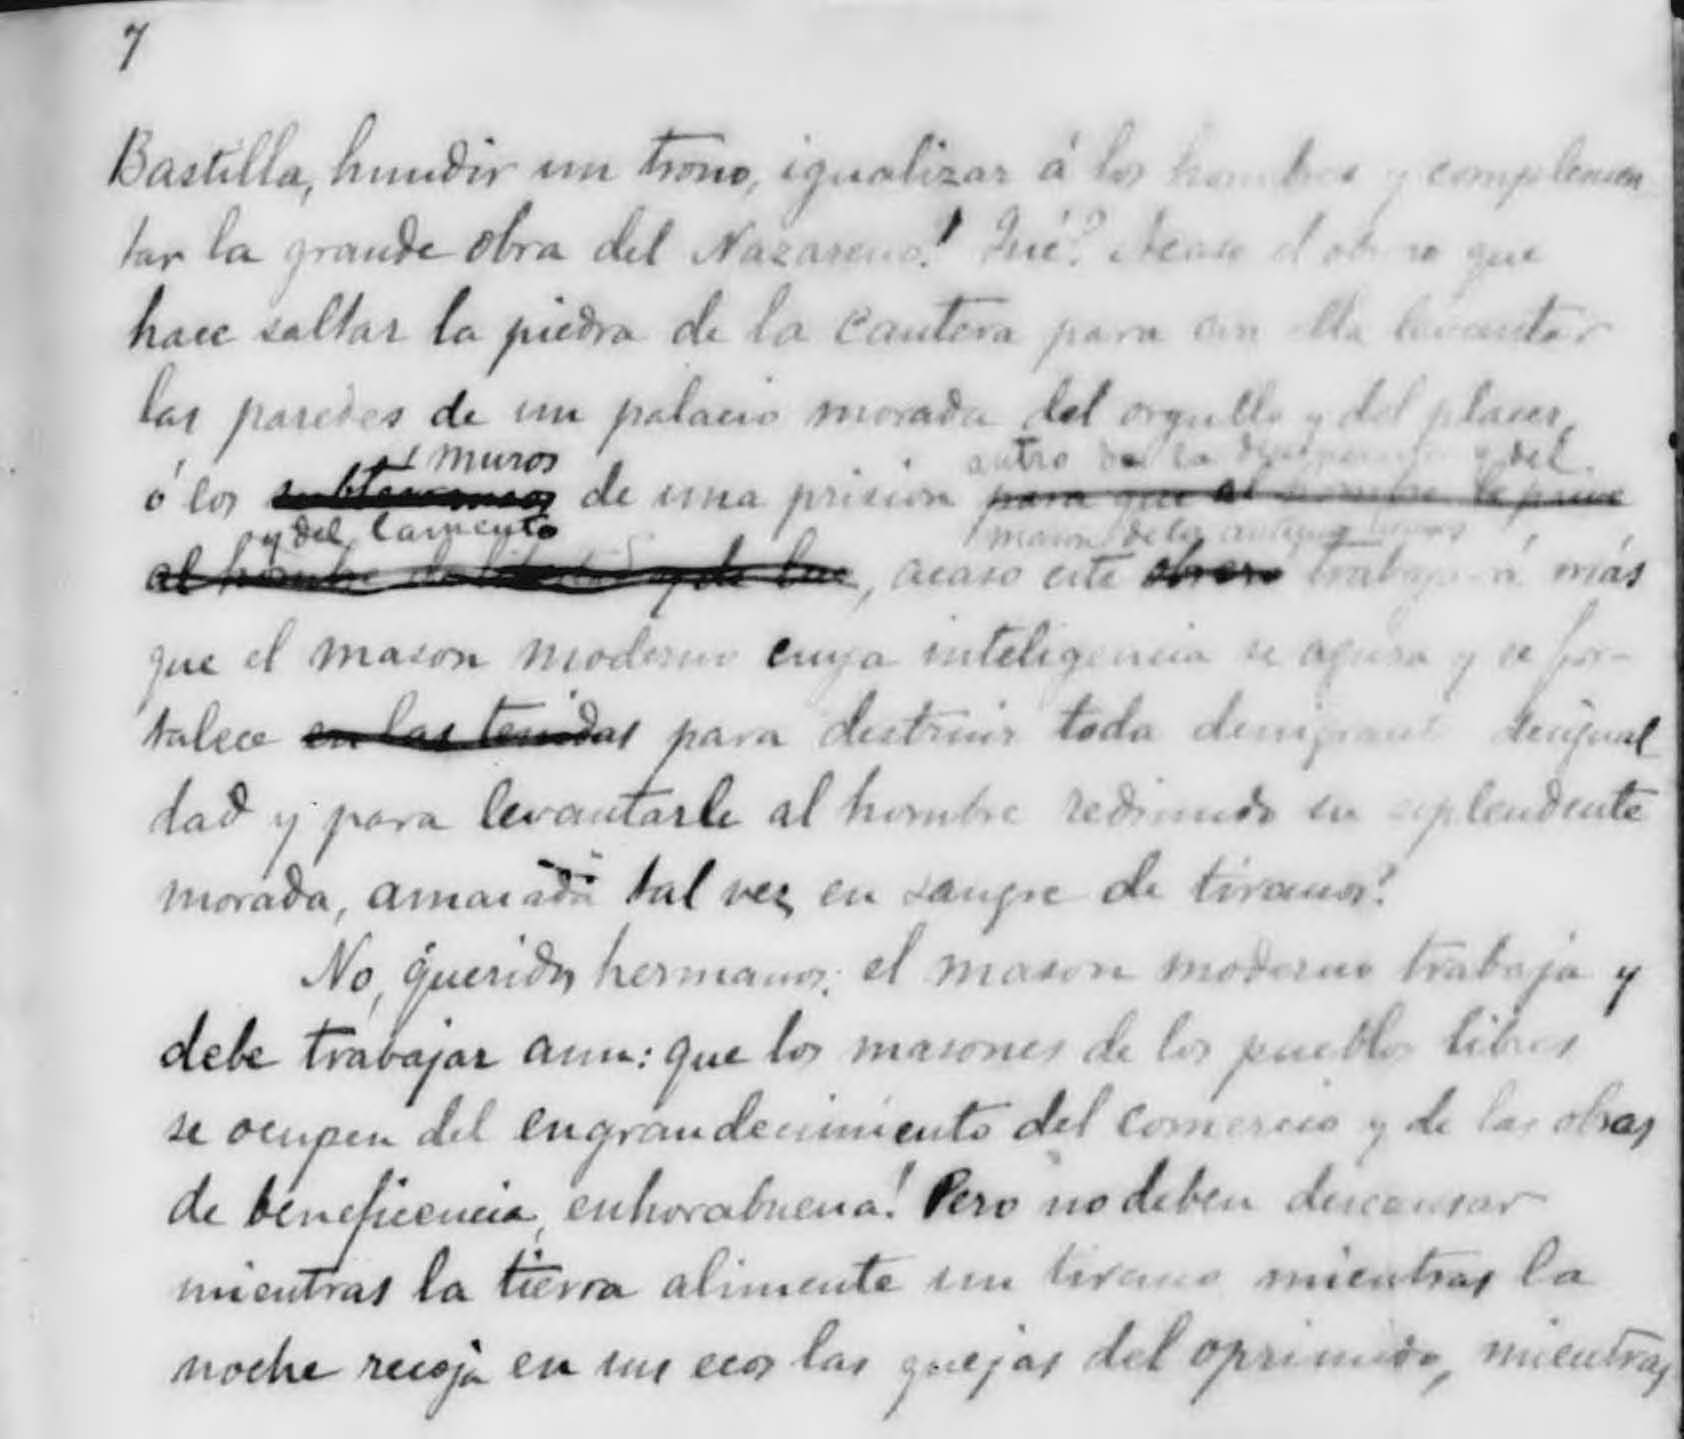 7
Bastilla, hundir un trono, igualizar á los hombres y complemen
tar la grande obra del Nazareno! Qué? Acaso el obrero que
hace saltar la piedra de la cantera para con ella levantar
las paredes de un palacio morada del orgullo y del placer,
muros antro de la desesperacion y del
ó los subterraneos de una prision para que al hombre le prive
y del lamento mason de los antiguos tiempos
al hombre de libertad y de luz, acaso este obrero trabajará más
que el mason moderno cuya inteligencia se aguza y se for-
talece en las tenidas para destruir toda denigrante desigual
dad y para levantarle al hombre redimido su esplendente
morada, amasada tal vez en sangre de tiranos?
No, queridos hermanos: el mason moderno trabaja y
debe trabajar aun: que los masones de los pueblos libres
se ocupen del engrandecimiento del comercio y de las obras
de beneficencia, enhorabuena! Pero no deben descansar
mientras la tierra alimente un tirano mientras la
noche recoja en sus ecos las quejas del oprimido, mientras